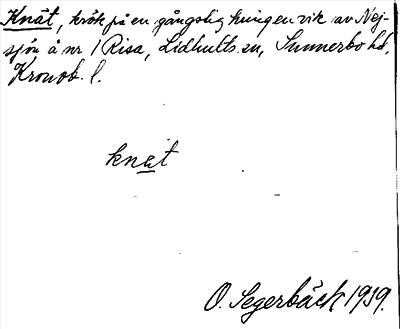 Knät, krök på en gångstig kring en vik av Nej-
sjön å nr 1 Risa, Lidhults sn, Sunnerbo hd,
Kronob. l.
knat
O. Segerbäck 1939.